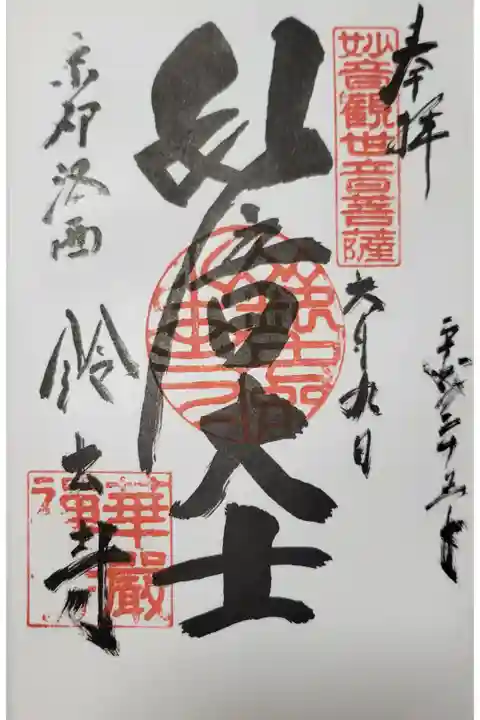 奉拝
平成二十五年
六月九日
妙音観世音菩薩
妙音大士
京都洛西
鈴虫寺
華厳
禅寺